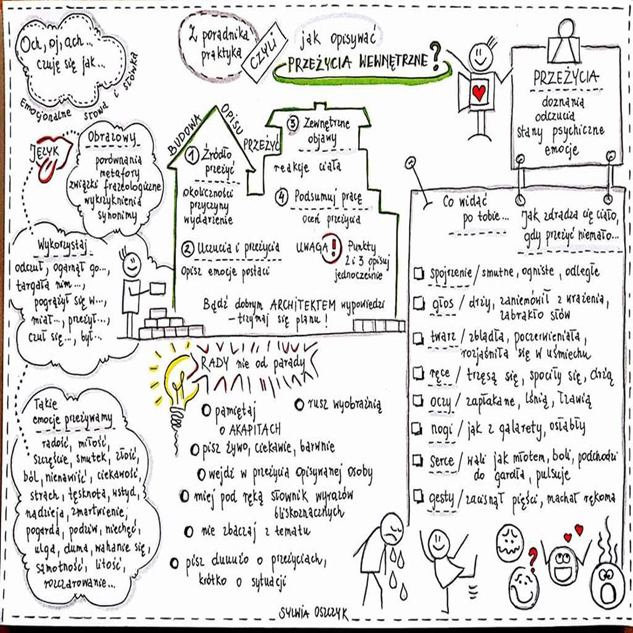 Z poradnika
praktyka
CZYLI
jak opisywać
PRZEŻYCIA WEWNĘTRZNE?
Och, oj, ach...
czuję się jak...
Emocjonalne słowa i słówka
JĘZYK
Obrazowy
porównania
metafory
związki frazeologiczne
wykrzyknienia
synonimy
Wykorzystaj
odczuł, ogarnął go...,
targała nim...,
pogrążył się w...,
miał..., przeżył...,
czuł się..., był...
Takie
emocje przeżywamy
radość, miłość,
szczęście, smutek, złość,
ból, nienawiść, ciekawość,
strach, tęsknota, wstyd,
nadzieja, zmartwienie,
pogarda, podziw, niechęć,
ulga, duma, wahanie się,
samotność, litość,
rozczarowanie...
BUDOWA OPISU PRZEŻYĆ
1 Źródło
przeżyć
okoliczności
przyczyny
wydarzenie
2 Uczucia i przeżycia
Opisz emocje postaci
3 Zewnętrzne
objawy
reakcje ciała
4 Podsumuj pracę
oceń przeżycia
UWAGA! Punkty
2 i 3 opisuj
jednocześnie
Bądź dobrym ARCHITEKTEM wypowiedzi
– trzymaj się planu!
RADY nie od parady
pamiętaj
o AKAPITACH
rusz wyobraźnią
pisz żywo, ciekawie, barwnie
wejdź w przeżycia opisywanej osoby
miej pod ręką słownik wyrazów
bliskoznacznych
nie zbaczaj z tematu
pisz duuużo o przeżyciach,
krótko o sytuacji
PRZEŻYCIA
doznania
odczucia
stany psychiczne
emocje
Co widać
po tobie...
Jak zdradza cię ciało,
gdy przeżyć niemało...
spojrzenie / smutne, ogniste, odległe
głos / drży, zaniemówił z wrażenia,
zabrakło słów
twarz / zbladła, poczerwieniała,
rozjaśniła się w uśmiechu
ręce / trzęsą się, spociły się, drżą
oczy / zapłakane, lśnią, łzawią
nogi / jak z galarety, osłabły
serce / wali jak młotem, boli, podchodzi
do gardła, pulsuje
gesty / zacisnął pięści, machał rękoma
SYLWIA OSZCZYK